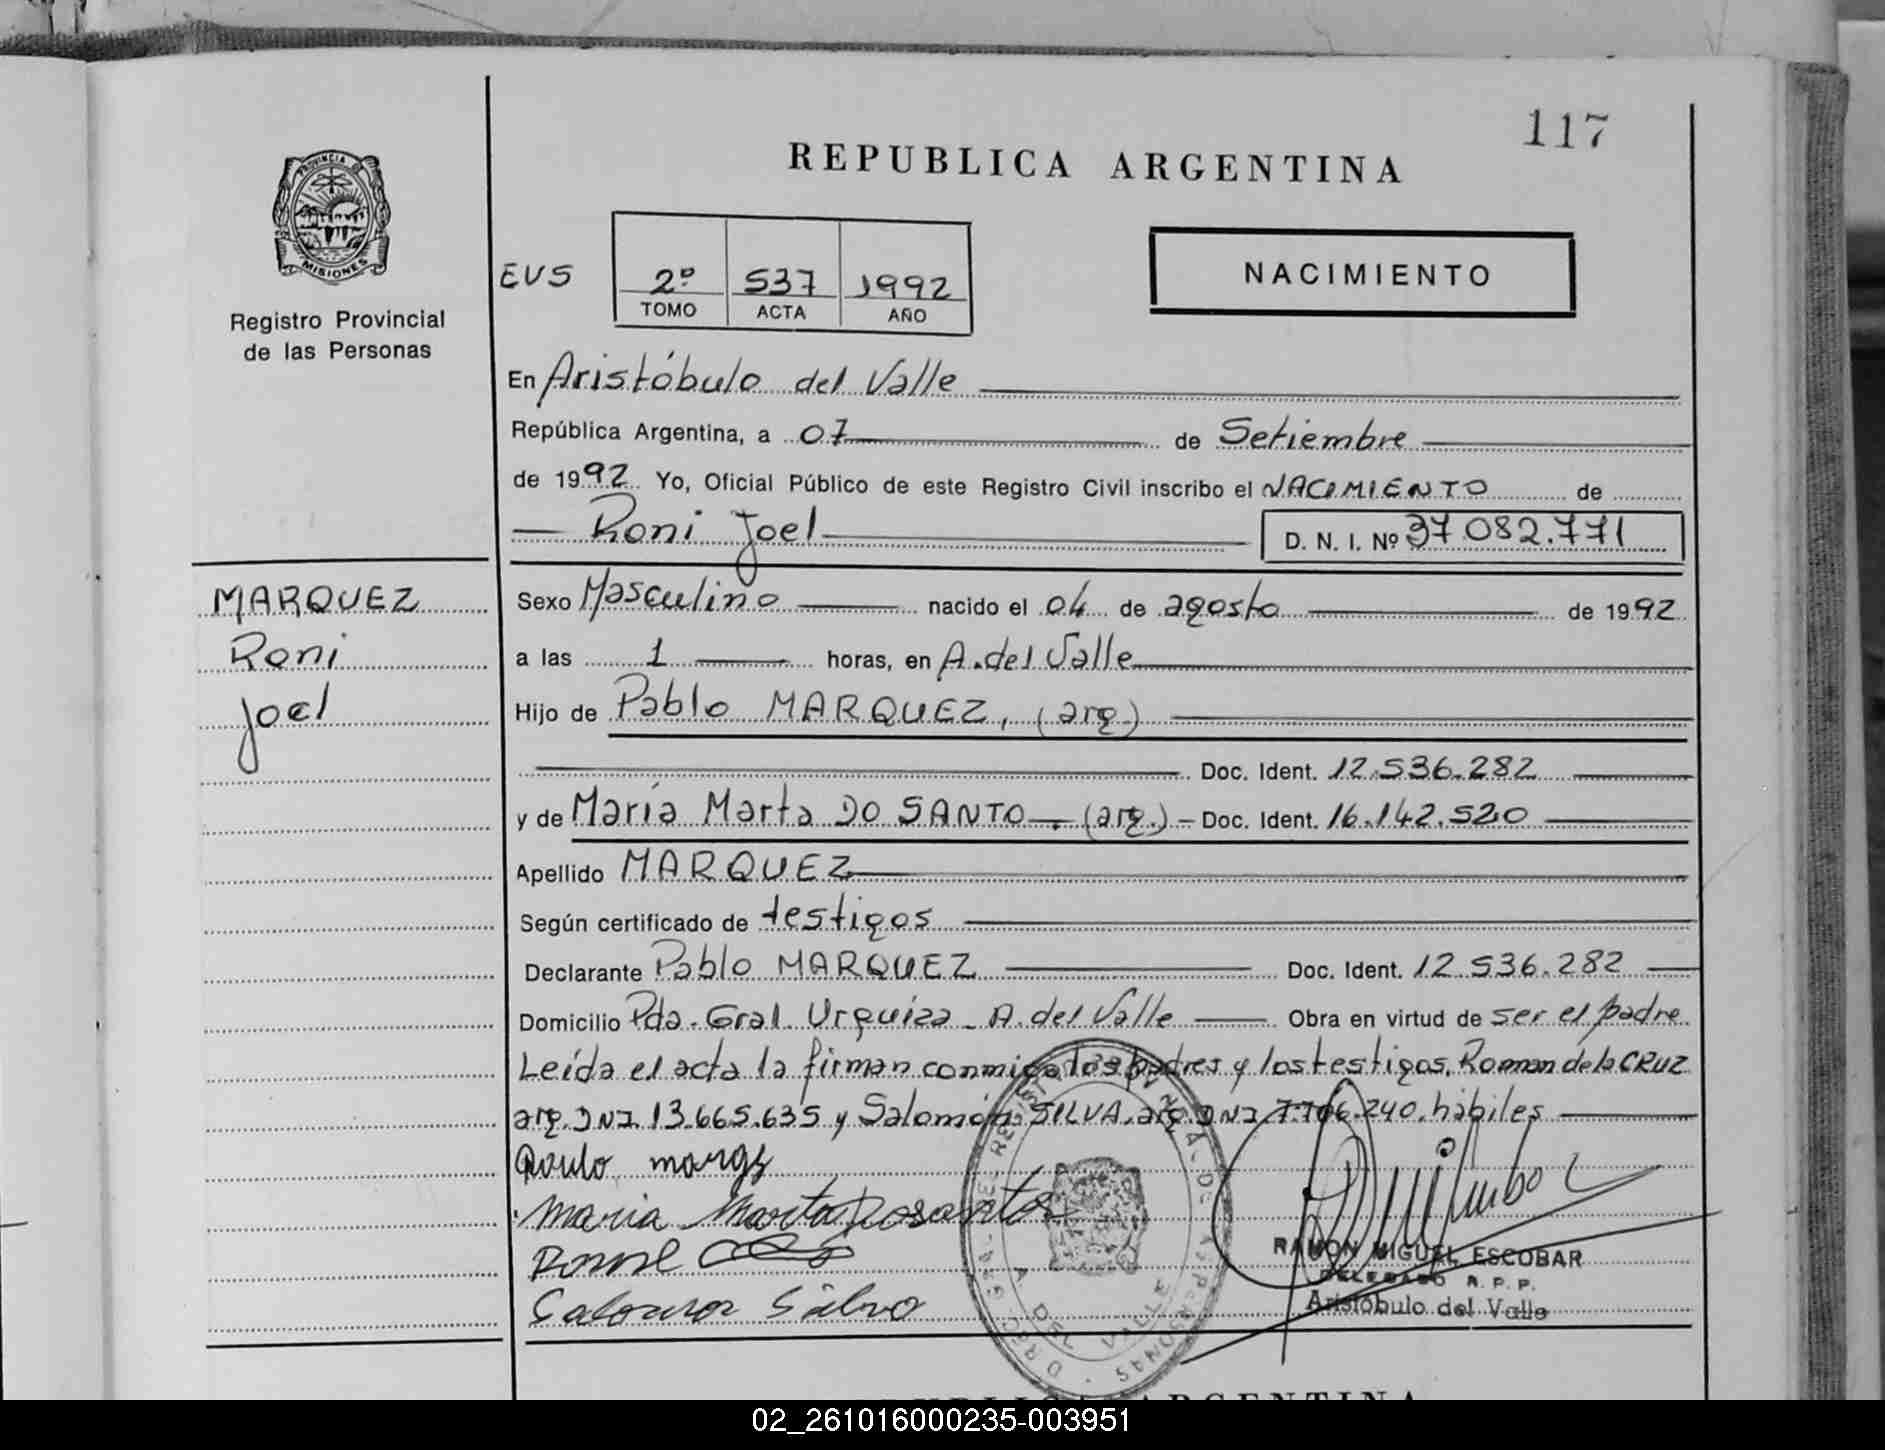 117
REPUBLICA ARGENTINA
PROVINCIA DE
MISIONES
Registro Provincial
de las Personas
EVS
2º 537 1992
TOMO ACTA AÑO
NACIMIENTO
En Aristóbulo del Valle
República Argentina, a 07 de Setiembre
de 1992 Yo, Oficial Público de este Registro Civil inscribo el NACIMIENTO de
Roni Joel D. N. I. Nº 37.082.771
MARQUEZ
Roni
Joel
Sexo Masculino nacido el 04 de agosto de 1992
a las 1 horas, en A. del Valle
Hijo de Pablo MARQUEZ, (arg.)
Doc. Ident. 12.536.282
y de María Marta DO SANTO. (arg.) Doc. Ident. 16.142.520
Apellido MARQUEZ
Según certificado de testigos
Declarante Pablo MARQUEZ Doc. Ident. 12.536.282
Domicilio Pda. Gral. Urquiza - A. del Valle Obra en virtud de ser el padre
Leída el acta la firman conmigo los padres y los testigos, Roman de la CRUZ
arg. DNI. 13.665.635 y Salomón SILVA, arg. DNI 7.706.240. hábiles
Maria Marta Dosantos
RAMON MIGUEL ESCOBAR
DELEGADO R.P.P.
Aristóbulo del Valle
02_261016000235-003951